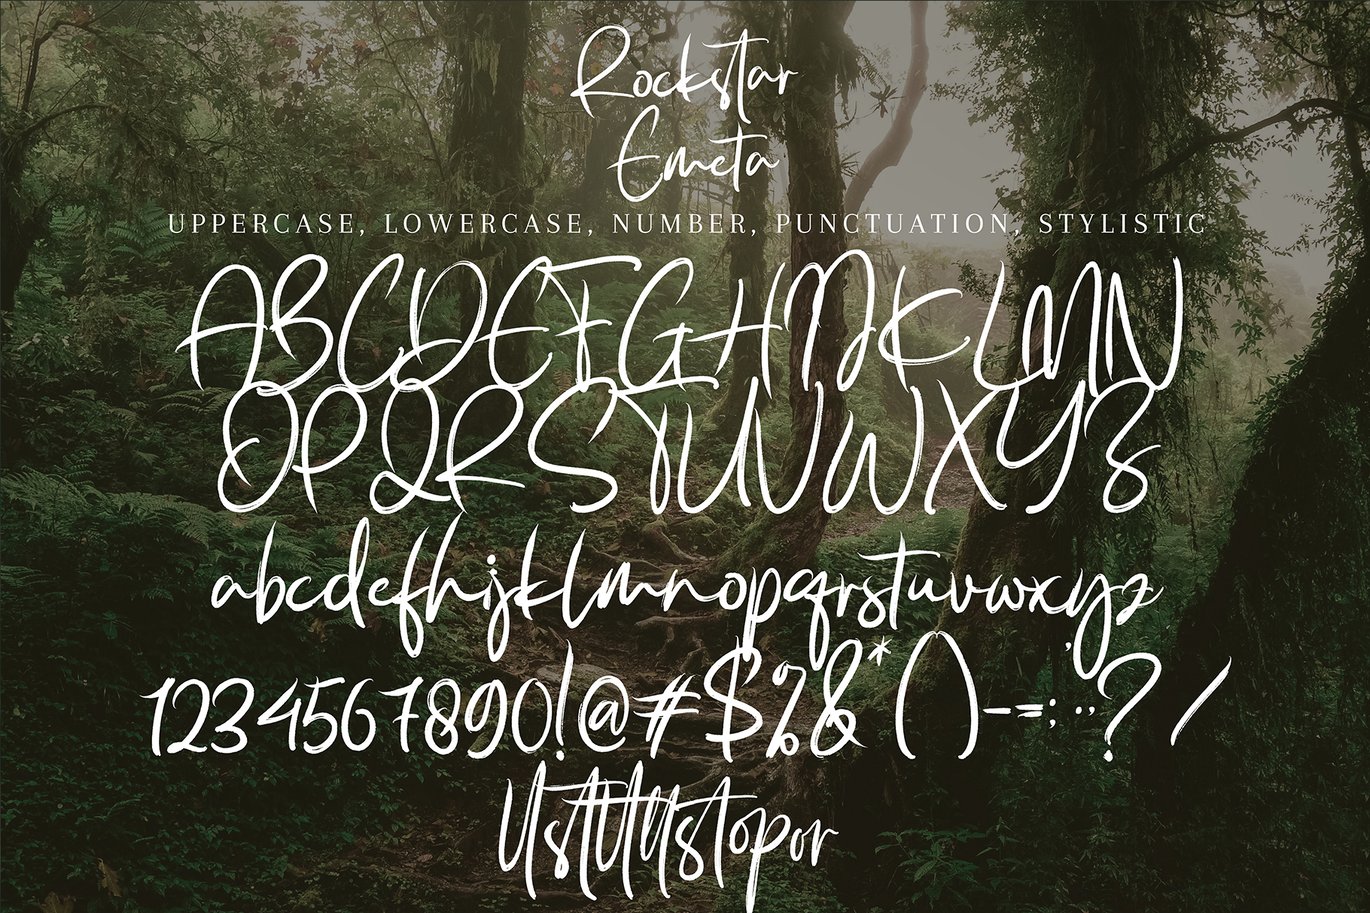 Rockstar
Emeta
UPPERCASE, LOWERCASE, NUMBER, PUNCTUATION, STYLISTIC
ABCDEFGHIJKLMN
OPQRSTUVWXYZ
abcdefhijklmnopqrstuvwxyz
1234567890!@#$%&*()-=;:,.?/